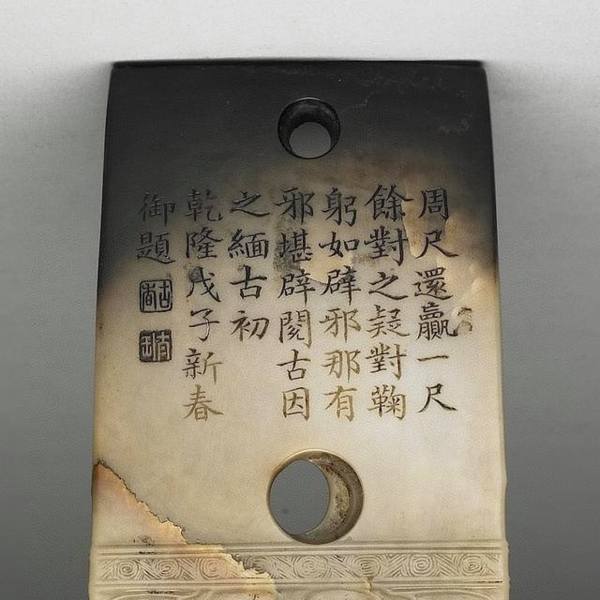 周尺還贏一尺
餘對之疑對鞠
躬如辟邪那有
邪堪辟閱古因
之緬古初
乾隆戊子新春
御題
古香